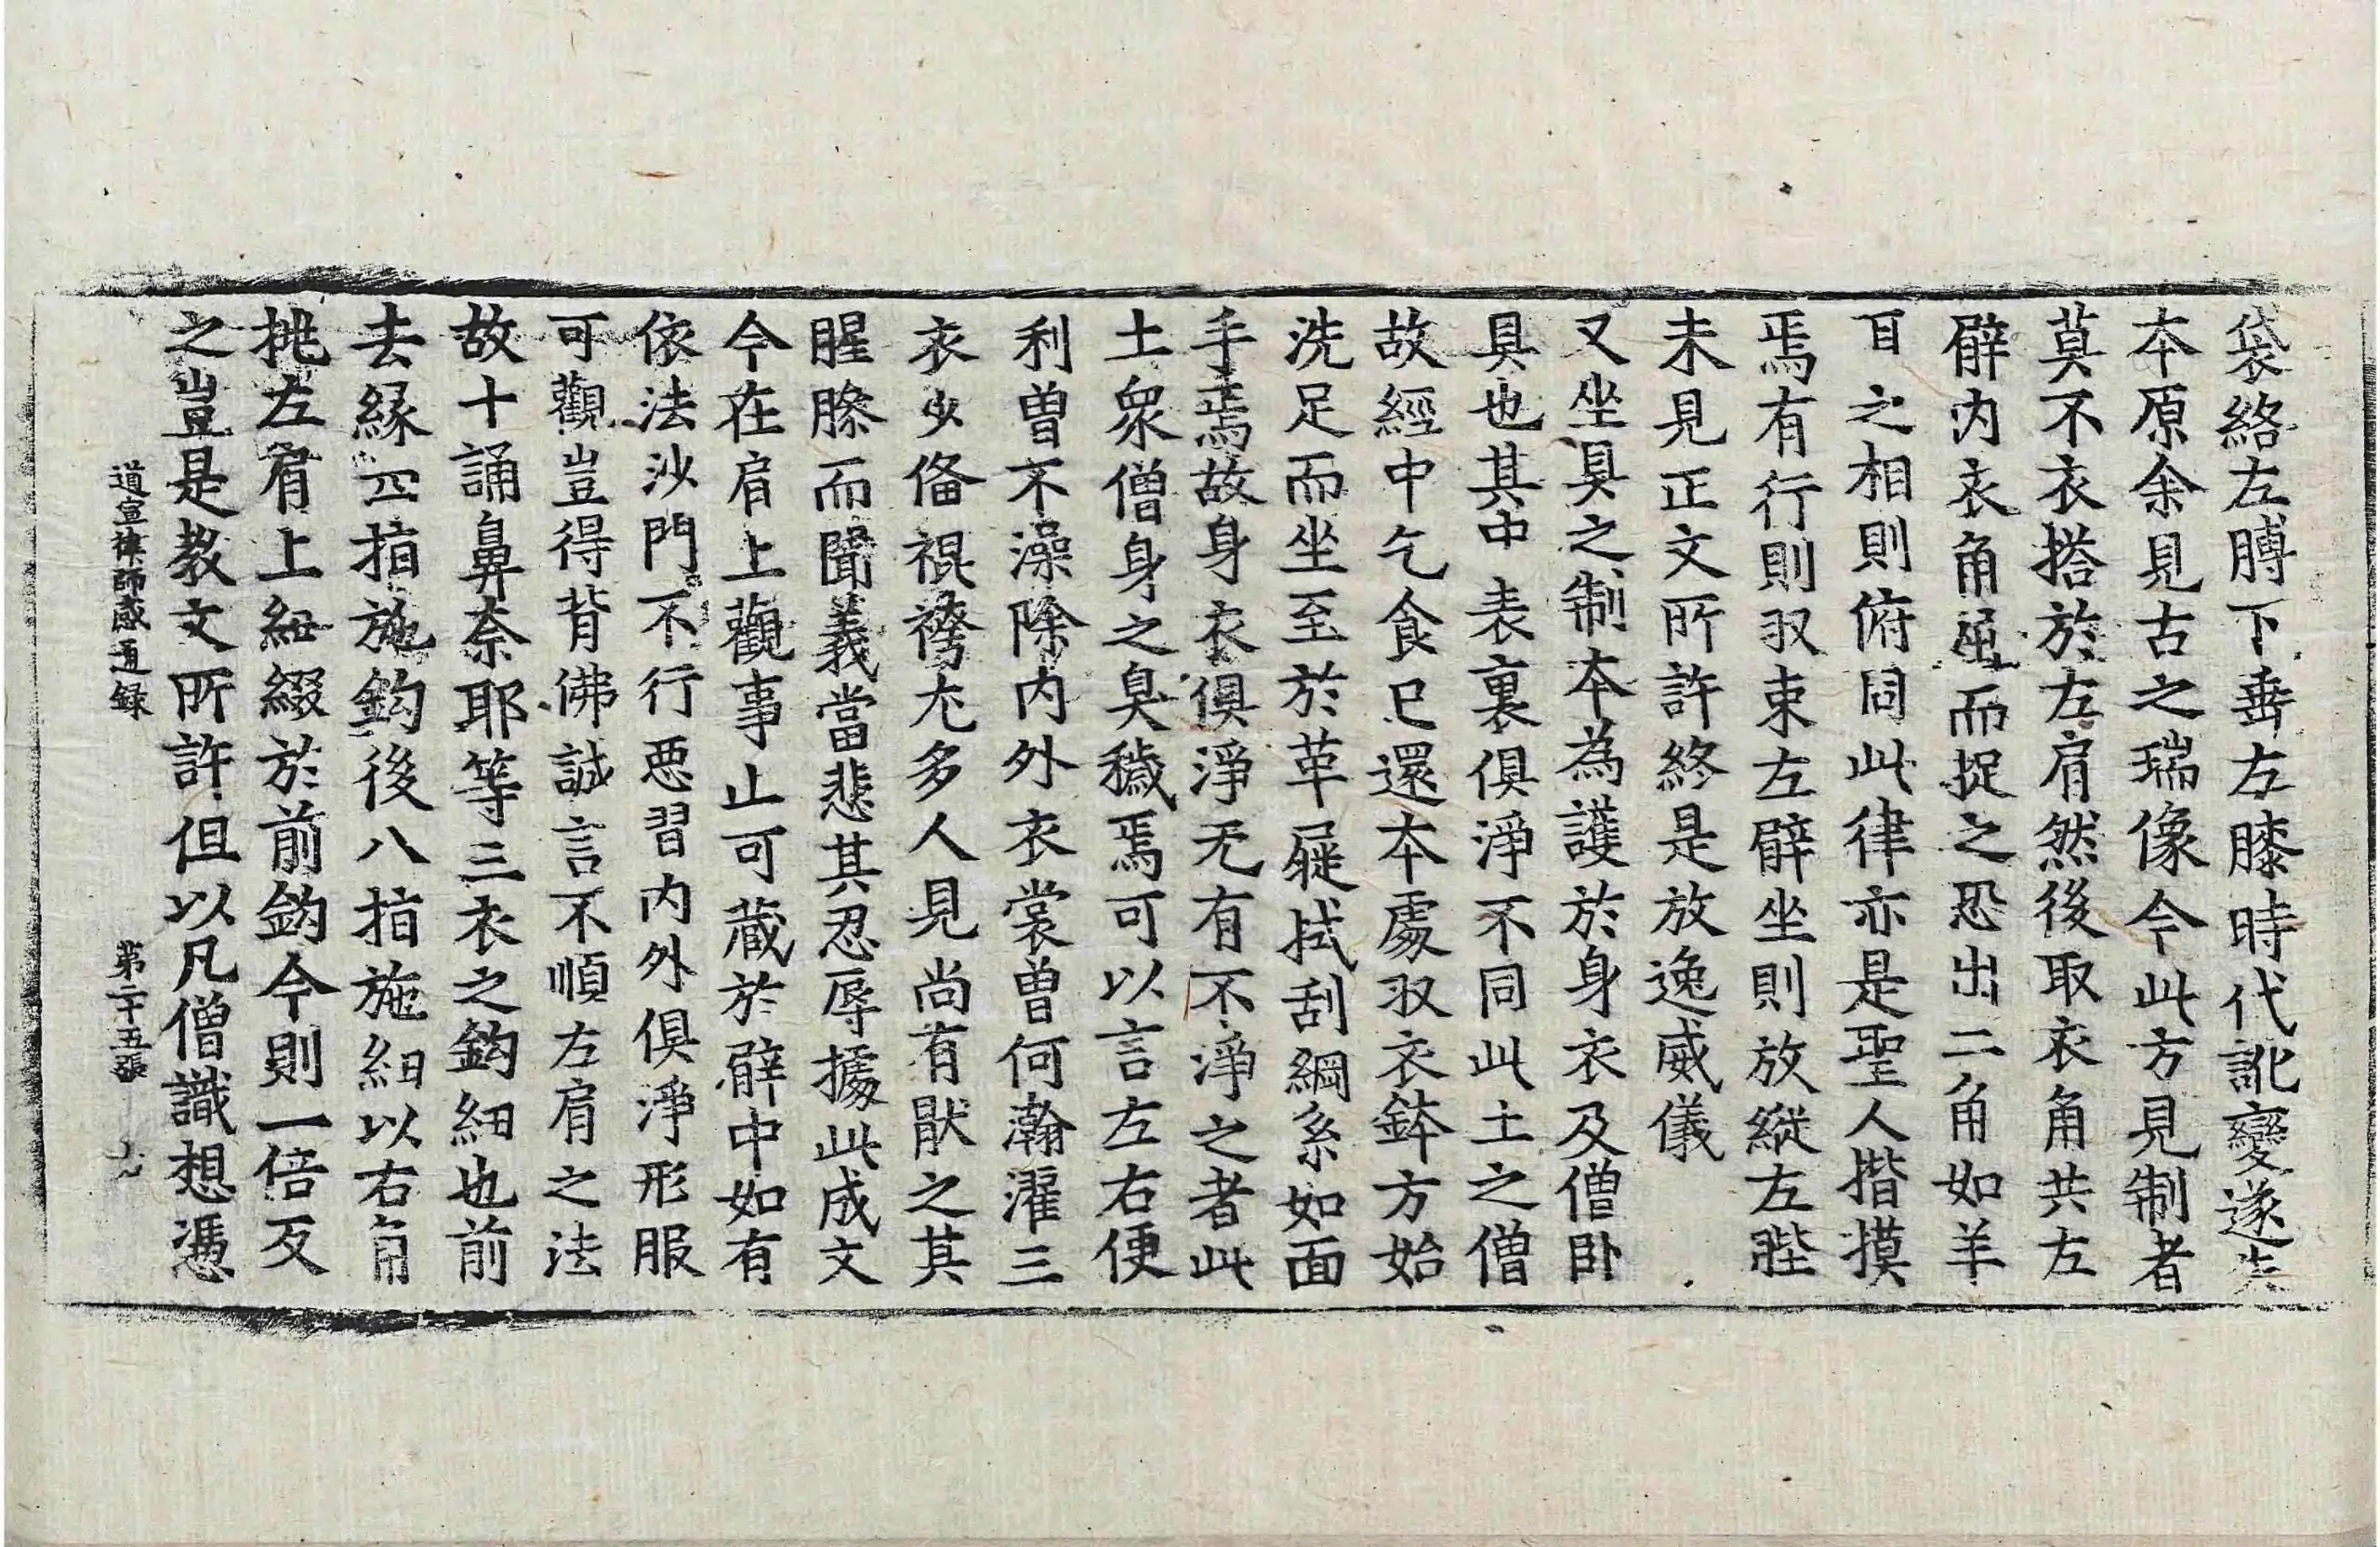 袋絡左膊下垂左膝時代訛變遂失
本原余見古之瑞像今此方見制者
莫不衣搭於左肩然後取衣角共左
臂内衣角重而捉之恐出二角如羊
耳之相則俯同此律亦是聖人揩摸
焉有行則収束左臂坐則放縱左髀
未見正文所許終是放逸威儀
又坐具之制本為護於身衣及僧卧
具也其中表裏俱淨不同此土之僧
故經中乞食已還本處収衣鉢方始
洗足而坐至於革屣拭刮綱系如面
手焉故身衣俱淨无有不淨之者此
土衆僧身之臭穢焉可以言左右便
利曽不澡除内外衣裳曽何瀚濯三
衣少俻裩袴尤多人見尚有猒之其
腥臊而聞義當悲其忍辱據此成文
今在肩上觀事止可藏於臂中如有
依法沙門不行惡習内外俱淨形服
可觀豈得背佛誠言不順左肩之法
故十誦鼻奈耶等三衣之鈎紐也前
去緣四指施鈎後八指施紐以右角
挑左肩上紐綴於前鈎今則一倍反
之豈是教文所許但以凡僧識想憑
道宣律師感通録 第二十五張